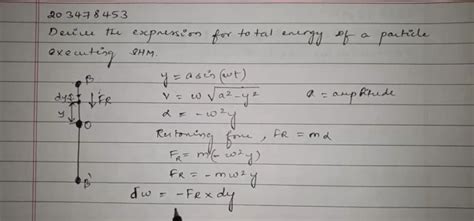 203478453
Derive the expression for total energy of a particle
executing SHM.
B
y = a sin (ωt)
dy
FR
v = ω √a²-y²
a = amplitude
y
α = -ω²y
O
Restoring force, FR = mα
FR = m(-ω²y)
FR = -mω²y
B'
dw = -FR x dy